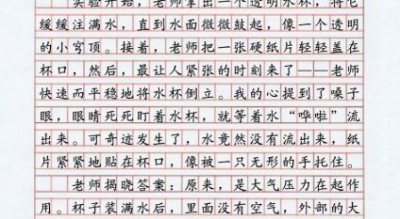 实验开始，老师拿出一个透明水杯，将它
缓缓注满水，直到水面微微鼓起，像一个透明
的小穹顶。接着，老师把一张硬纸片轻轻盖在
杯口，然后，最让人紧张的时刻来了——老师
快速而平稳地将水杯倒立。我的心提到了嗓子
眼，眼睛死死盯着水杯，就等着水“哗啦”流
出来。可奇迹发生了，水竟然没有流出来，纸
片紧紧地贴在杯口，像被一只无形的手托住。
老师揭晓答案：原来，是大气压力在起作
用。杯子装满水后，里面没有空气，外部的大